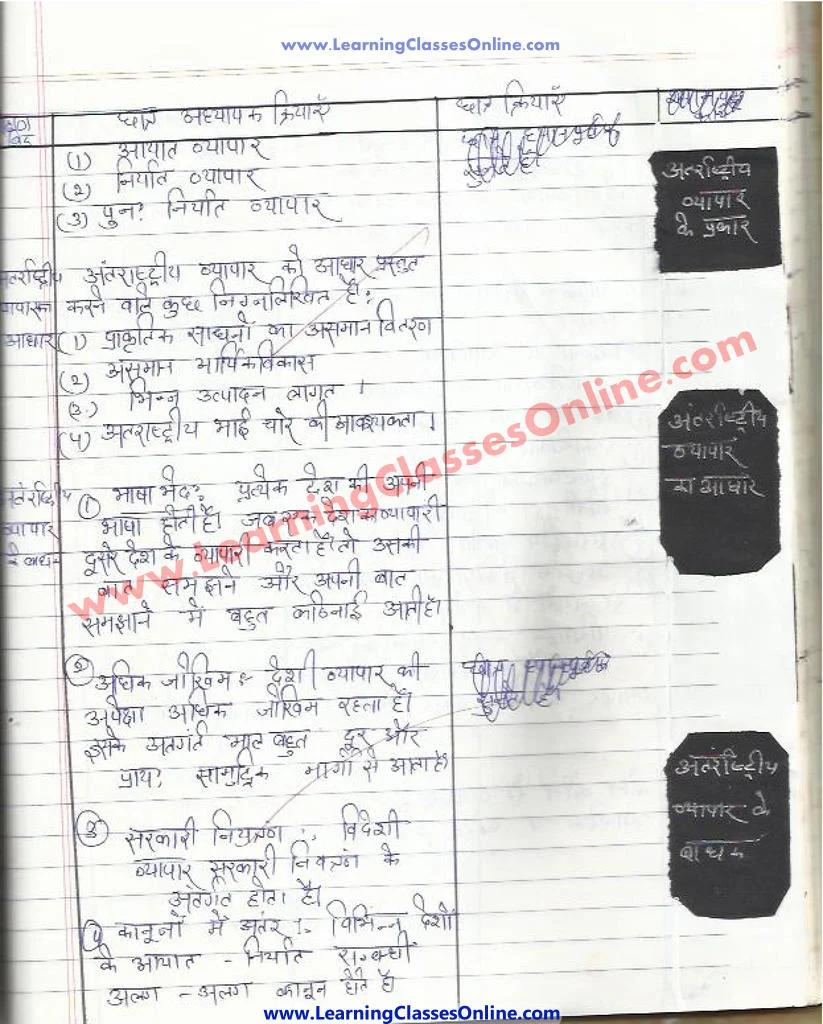 www.LearningClassesOnline.com
छात्र अध्यापक क्रियाएँ
छात्र क्रियाएँ
(1) आयात व्यापार
(2) निर्यात व्यापार
(3) पुन: निर्यात व्यापार
अर्तराष्ट्रीय
व्यापार
के प्रकार
अंतराष्ट्रीय व्यापार को आधार प्रस्तुत
करने वाले कुछ निम्नलिखित है:
आधार
(1) प्राकृतिक साधनों का असमान वितरण
(2) असमान आर्थिक विकास
(3.) भिन्न उत्पादन लागत ।
(4) अंतराष्ट्रीय भाई चारे की आवश्यकता ।
अंतर्राष्ट्रीय
व्यापार
का आधार
व्यापार
① भाषा भेद: प्रत्येक देश की अपनी
भाषा होती है। जब एक देश का व्यापारी
दूसरे देश के व्यापारी करता है। तो उसकी
बात समझने और अपनी बात
समझाने में बहुत कठिनाई आती है।
www.LearningClassesOnline.com
② अधिक जोखिम :- देशी व्यापार की
अपेक्षा अधिक जोखिम रहता है।
इसके अतगंर्त माल बहुत दूर और
प्राय: सामुद्रिक मार्गों से आता है।
अंतर्राष्ट्रीय
व्यापार के
बाधक
③ सरकारी नियंत्रण :- विदेशी
व्यापार सरकारी नियंत्रण के
अंतर्गत होता है।
④ कानूनों में अंतर :- विभिन्न देशों
के आयात - निर्यात सम्बन्धी
अलग - अलग कानून होते है
www.LearningClassesOnline.com